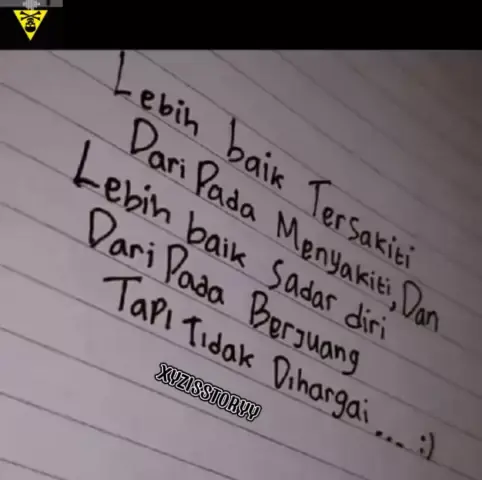 Lebih baik Tersakiti
Dari Pada Menyakiti, Dan
Lebih baik sadar diri
Dari Pada Berjuang
Tapi Tidak Dihargai.... :)
XYZISSTORYY